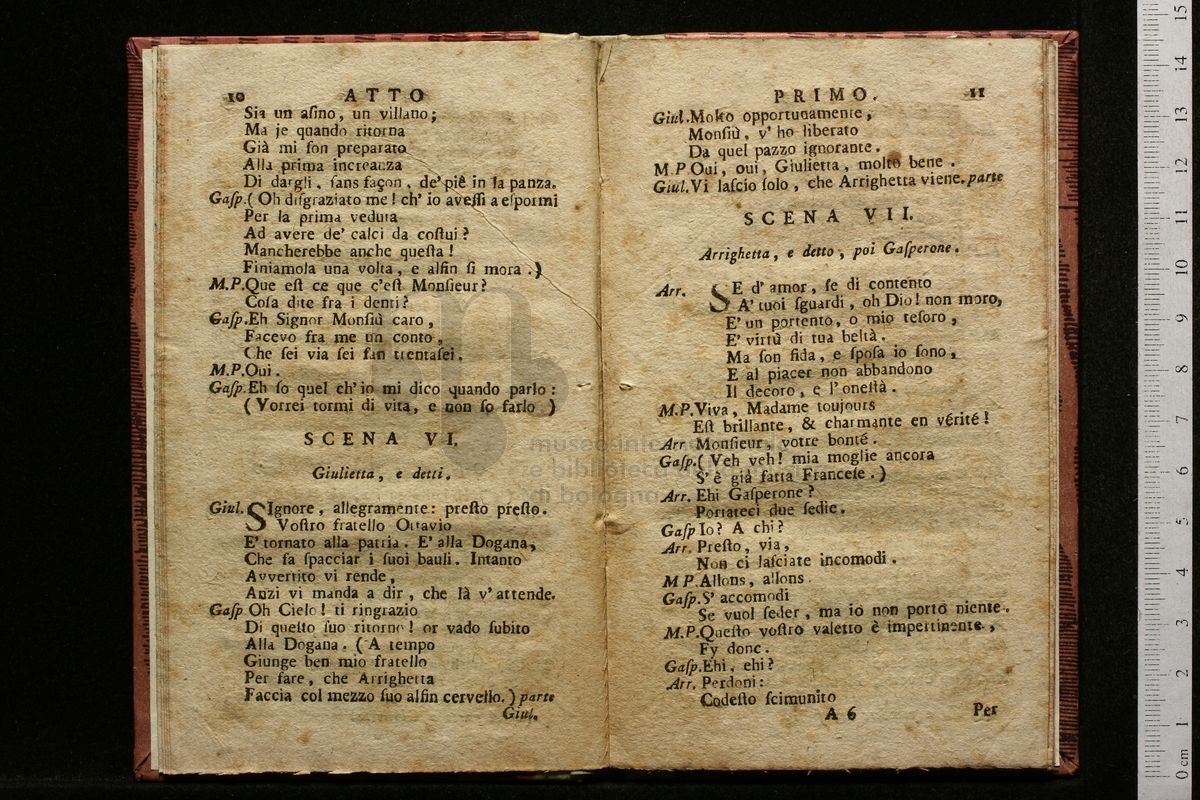 10 ATTO
Sia un asino, un villano;
Ma je quando ritorna
Già mi son preparato
Alla prima increanza
Di dargli, sans façon, de' piè in la panza.
Gasp. (Oh disgraziato me! ch' io avessi a espormi
Per la prima veduta
Ad avere de' calci da costui?
Mancherebbe anche questa!
Finiamola una volta, e alfin si mora.)
M.P. Que est ce que c'est Monsieur?
Cosa dite fra i denti?
Gasp. Eh Signor Monsiù caro,
Facevo fra me un conto,
Che sei via sei fan trentasei.
M.P. Oui.
Gasp. Eh so quel ch' io mi dico quando parlo:
(Vorrei tormi di vita, e non so farlo)
SCENA VI.
Giulietta, e detti.
Giul. SIgnore, allegramente: presto presto.
Vostro fratello Ottavio
E' tornato alla patria. E' alla Dogana,
Che fa spacciar i suoi bauli. Intanto
Avvertito vi rende,
Anzi vi manda a dir, che là v' attende.
Gasp Oh Cielo! ti ringrazio
Di questo suo ritorno! or vado subito
Alla Dogana. (A tempo
Giunge ben mio fratello
Per fare, che Arrighetta
Faccia col mezzo suo alfin cervello.) parte
Giul.
PRIMO. 11
Giul. Molto opportunamente,
Monsiù, v' ho liberato
Da quel pazzo ignorante.
M.P Oui, oui, Giulietta, molto bene.
Giul. Vi lascio solo, che Arrighetta viene. parte
SCENA VII.
Arrighetta, e detto, poi Gasperone.
Arr. SE d' amor, se di contento
A' tuoi sguardi, oh Dio! non moro,
E' un portento, o mio tesoro,
E' virtù di tua beltà.
Ma son fida, e sposa io sono,
E al piacer non abbandono
Il decoro, e l' onestà.
M.P. Viva, Madame toujours
Est brillante, & charmante en vérité!
Arr Monsieur, votre bonté.
Gasp. (Veh veh! mia moglie ancora
S' è già fatta Francese.)
Arr. Ehi Gasperone?
Portateci due sedie.
Gasp Io? A chi?
Arr. Presto, via,
Non ci lasciate incomodi.
M P. Allons, allons.
Gasp. S' accomodi
Se vuol seder, ma io non porto niente.
M.P. Questo vostro valetto è impertinente,
Fy donc.
Gasp. Ehi, ehi?
Arr. Perdoni:
Codesto scimunito
A 6 Per
museo inte
e biblioteca
di bologna
0 cm 1 2 3 4 5 6 7 8 9 10 11 12 13 14 15